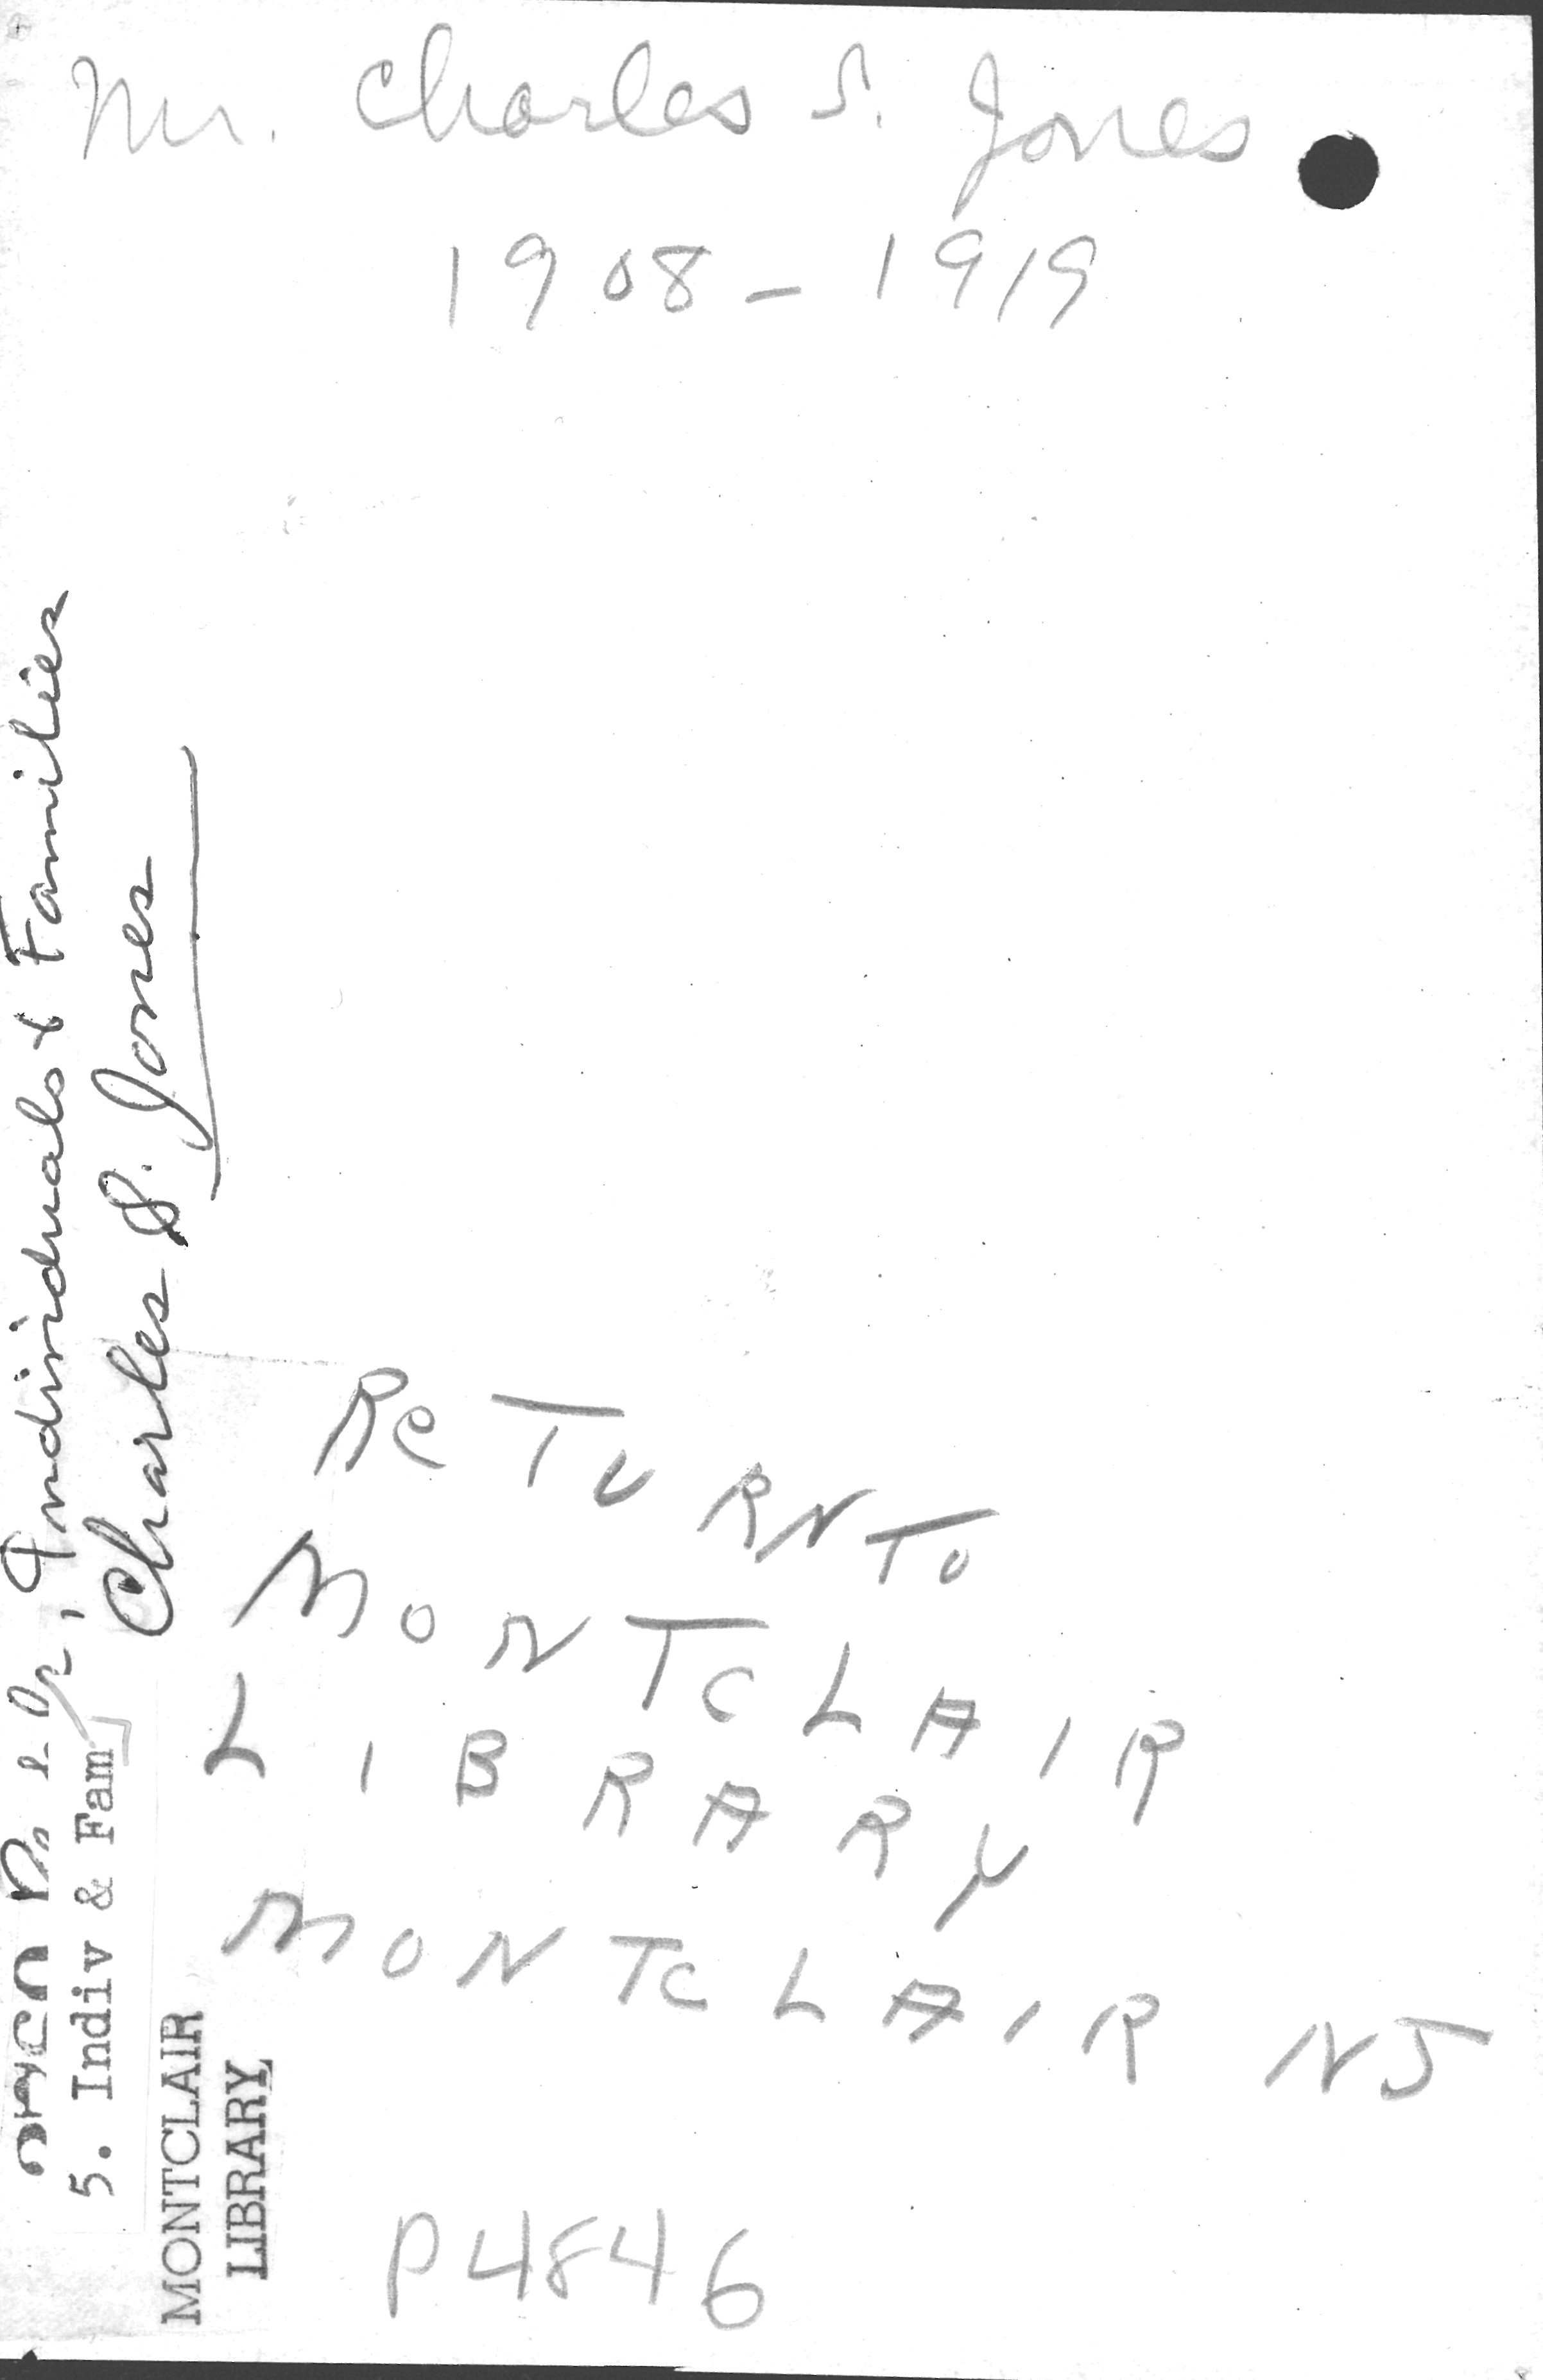 Mr. Charles S. Jones
1908-1919
Individuals & Families
Charles S. Jones
5. Indiv & Fam
MONTCLAIR
LIBRARY
ReTURN TO
MONTCLAIR
LIBRARY
MONTCLAIR NJ
P4846